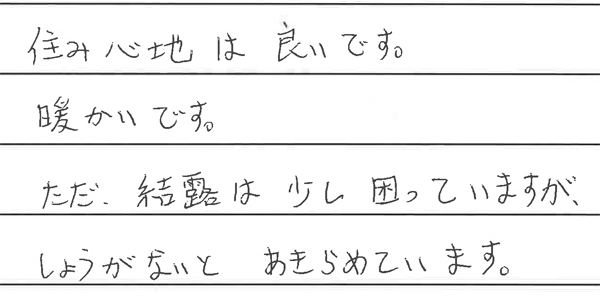 住み心地は良いです。
暖かいです。
ただ、結露は少し困っていますが、
しょうがないとあきらめています。